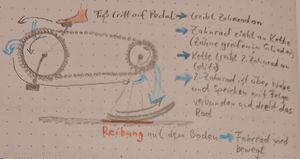 Fuß tritt auf Pedal → treibt Zahnrad an
→ Zahnrad zieht an Kette
(Zähne greifen in Glieder)
→ Kette treibt 2. Zahnrad an
→ 2. Zahnrad ist über Nabe
und Speichen mit Felge
verbunden und dreht das
Rad
Reibung mit dem Boden → Fahrrad wird
bewegt